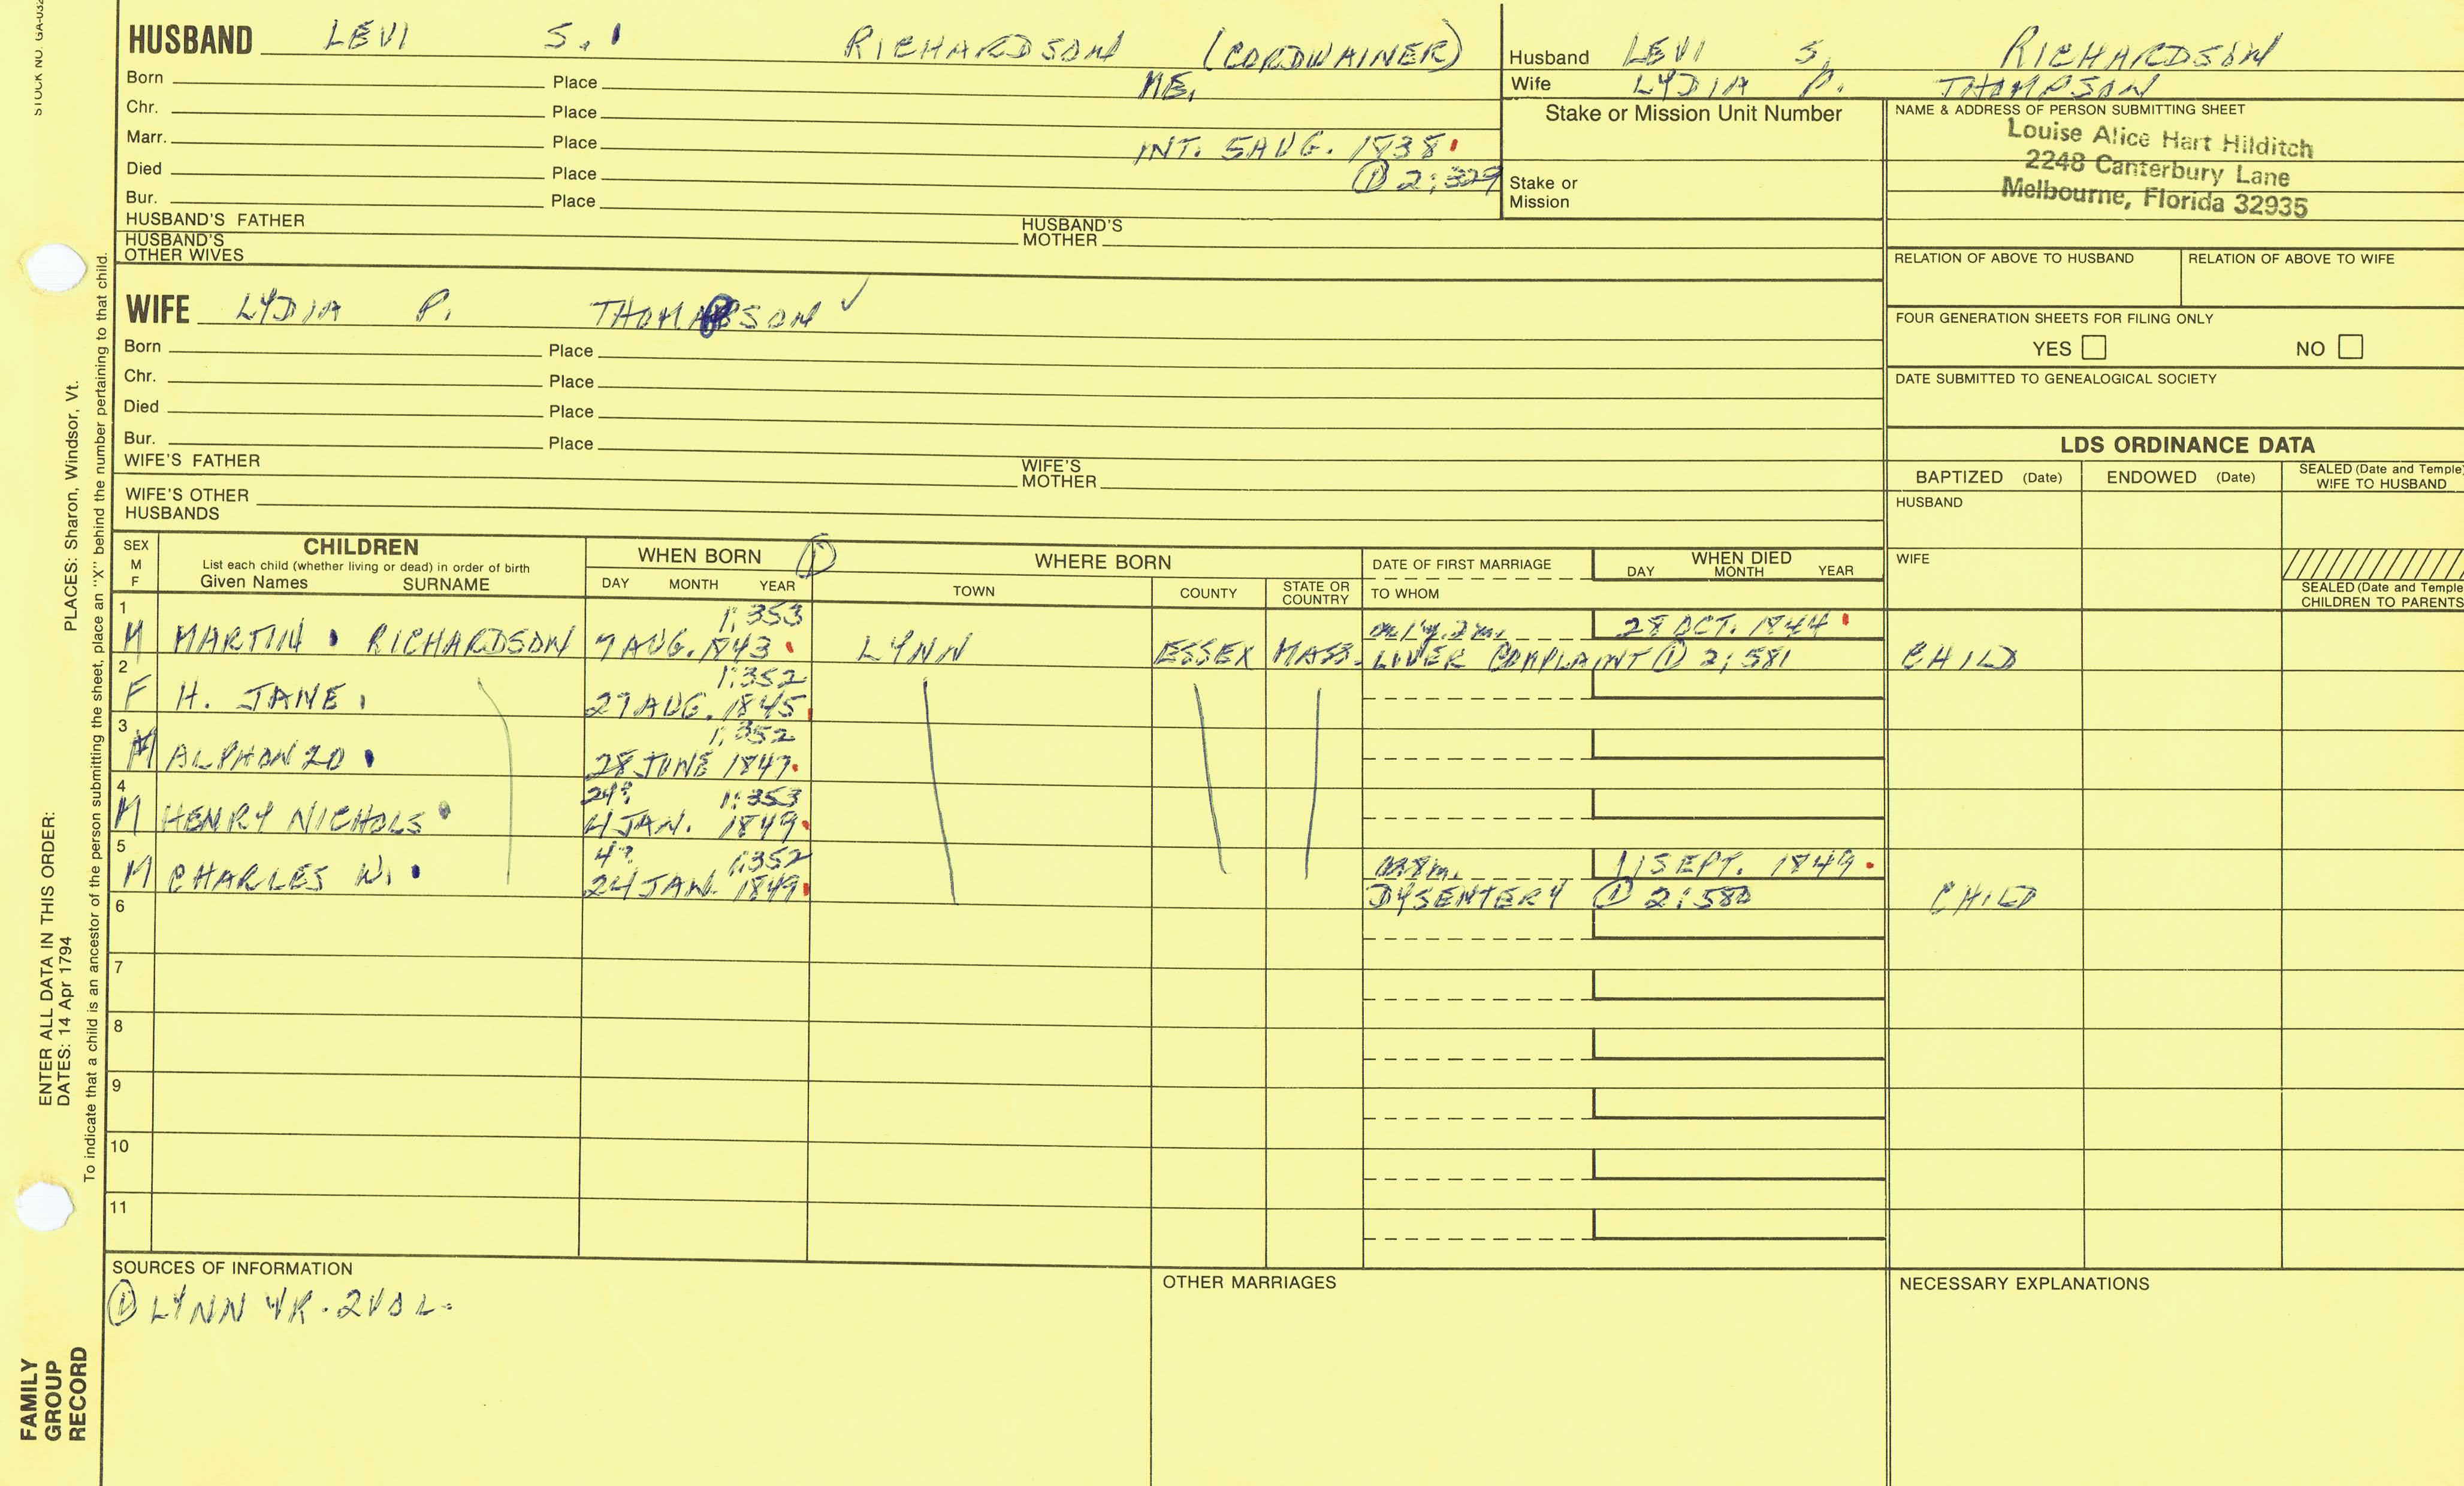 STOCK NO. GA-032
HUSBAND LEVI S. RICHARDSON (CORDWAINER)
Born Place ME.
Chr. Place
Marr. Place INT. 5 AUG. 1838
Died Place ① 2:329
Bur. Place
HUSBAND'S FATHER HUSBAND'S MOTHER
HUSBAND'S OTHER WIVES
Husband LEVI S. RICHARDSON
Wife LYDIA P. THOMPSON
Stake or Mission Unit Number
Stake or Mission
NAME & ADDRESS OF PERSON SUBMITTING SHEET
Louise Alice Hart Hilditch
2248 Canterbury Lane
Melbourne, Florida 32935
RELATION OF ABOVE TO HUSBAND RELATION OF ABOVE TO WIFE
FOUR GENERATION SHEETS FOR FILING ONLY
YES NO
DATE SUBMITTED TO GENEALOGICAL SOCIETY
WIFE LYDIA P. THOMPSON ✓
Born Place
Chr. Place
Died Place
Bur. Place
WIFE'S FATHER WIFE'S MOTHER
WIFE'S OTHER HUSBANDS
LDS ORDINANCE DATA
BAPTIZED (Date) ENDOWED (Date) SEALED (Date and Temple) WIFE TO HUSBAND
HUSBAND
WIFE
SEALED (Date and Temple) CHILDREN TO PARENTS
SEX M F
CHILDREN
List each child (whether living or dead) in order of birth
Given Names SURNAME
WHEN BORN ①
DAY MONTH YEAR
WHERE BORN
TOWN COUNTY STATE OR COUNTRY
DATE OF FIRST MARRIAGE
TO WHOM
WHEN DIED
DAY MONTH YEAR
1 1:353 a. 1 y. 2 m. 28 OCT. 1844
M MARTIN RICHARDSON 7 AUG. 1843 LYNN ESSEX MASS. LIVER COMPLAINT ① 2:581 CHILD
2 1:352
F H. JANE 27 AUG. 1845
3 1:352
M ALPHONZO 28 JUNE 1847
4 24? 1:353
M HENRY NICHOLS 4 JAN. 1849
5 4? 1:352 a. 8 m. 11 SEPT. 1849
M CHARLES W. 24 JAN. 1849 DYSENTERY ① 2:580 CHILD
6
7
8
9
10
11
SOURCES OF INFORMATION
① LYNN VR. 2 VOL.
OTHER MARRIAGES
NECESSARY EXPLANATIONS
ENTER ALL DATA IN THIS ORDER:
DATES: 14 Apr 1794 PLACES: Sharon, Windsor, Vt.
To indicate that a child is an ancestor of the person submitting the sheet, place an "X" behind the number pertaining to that child.
FAMILY
GROUP
RECORD